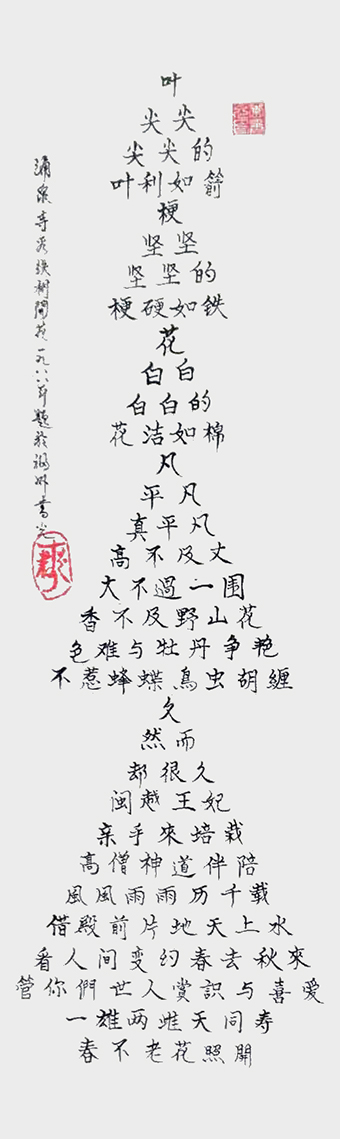 叶
尖尖
尖尖的
叶利如箭
梗
坚坚
坚坚的
梗硬如铁
花
白白
白白的
花洁如棉
凡
平凡
真平凡
高不及丈
大不過一围
香不及野山花
色难与牡丹争艳
不惹蜂蝶鳥虫胡缠
久
然而
却很久
闽越王妃
亲手來培栽
高僧神道伴陪
風風雨雨历千载
借殿前片地天上水
看人间变幻春去秋來
管你們世人赏识与喜爱
一雄两雌天同寿
春不老花照開
涌泉寺 铁樹開花一九八八年题於福州